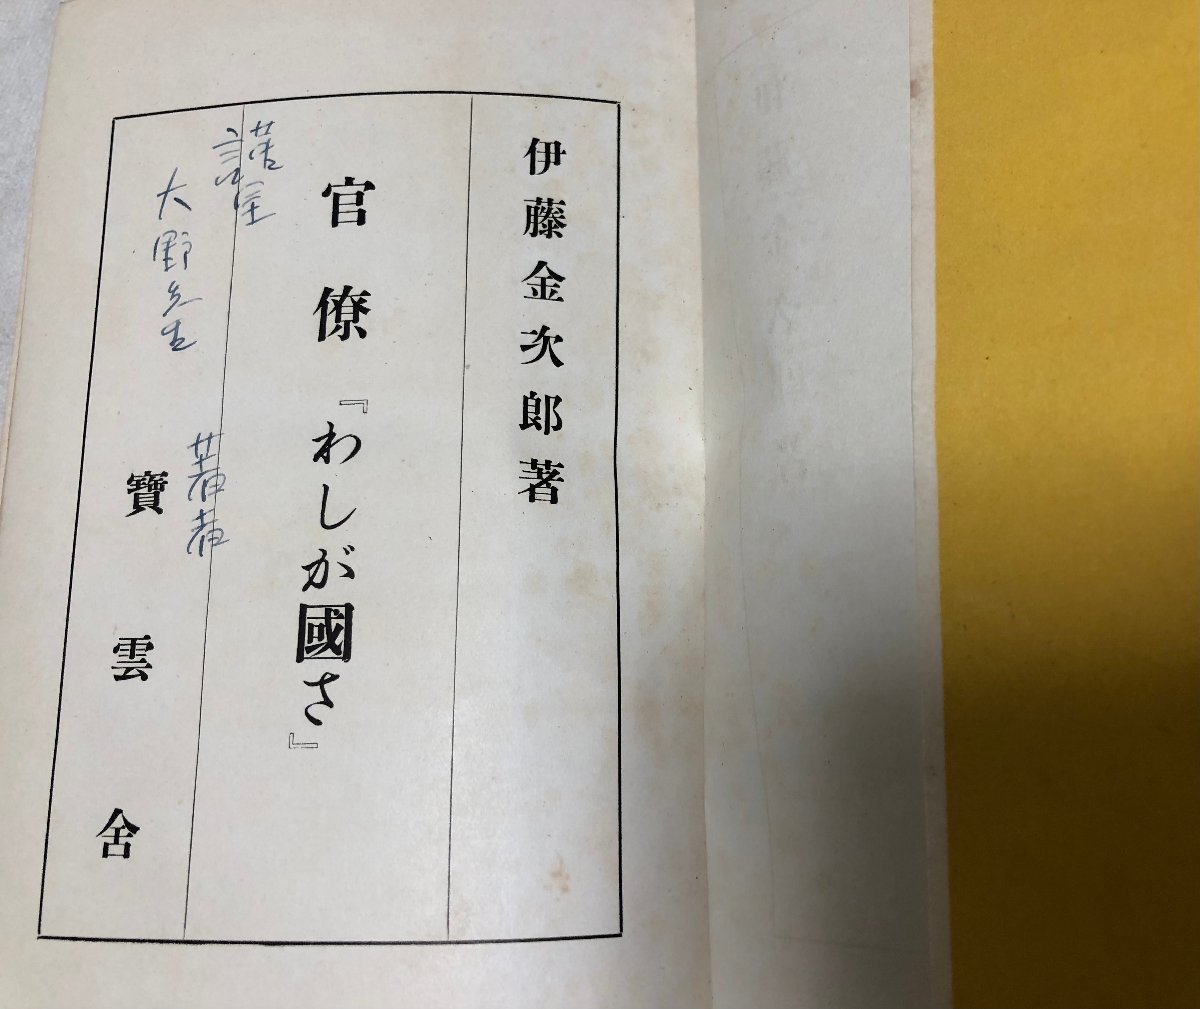 伊藤金次郎著
官僚『わしが國さ』
謹呈
大野先生
著者
寶雲舍